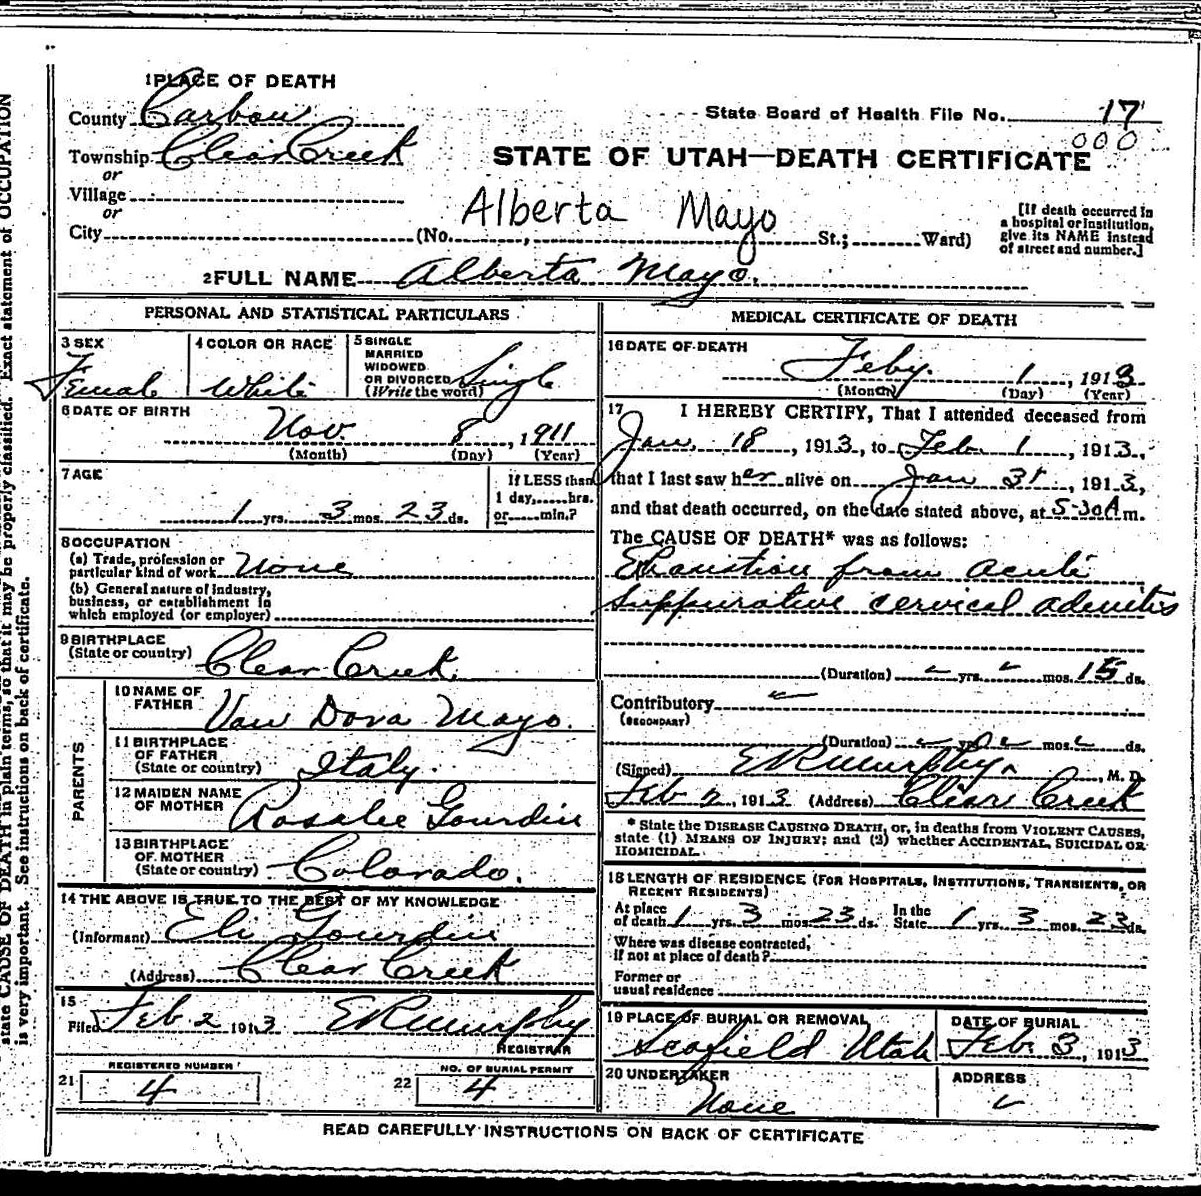 state CAUSE OF DEATH in plain terms, so that it may be properly classified. Exact statement of OCCUPATION
is very important. See instructions on back of certificate.
1 PLACE OF DEATH
County Carbon
State Board of Health File No. 17
000
Township Clear Creek
or
STATE OF UTAH—DEATH CERTIFICATE
Village
or
Alberta Mayo
City (No. , St.; Ward)
[If death occurred in
a hospital or institution,
give its NAME instead
of street and number.]
2 FULL NAME Alberta Mayo.
PERSONAL AND STATISTICAL PARTICULARS
3 SEX
Female
4 COLOR OR RACE
White
5 SINGLE
MARRIED
WIDOWED
OR DIVORCED
(Write the word)
Single
6 DATE OF BIRTH
Nov. 8, 1911
(Month) (Day) (Year)
7 AGE
1 yrs. 3 mos. 23 ds.
If LESS than
1 day, hrs.
or min.?
8 OCCUPATION
(a) Trade, profession or
particular kind of work None
(b) General nature of industry,
business, or establishment in
which employed (or employer)
9 BIRTHPLACE
(State or country) Clear Creek.
PARENTS
10 NAME OF
FATHER Van Dora Mayo.
11 BIRTHPLACE
OF FATHER
(State or country) Italy.
12 MAIDEN NAME
OF MOTHER Rosalee Gourdin
13 BIRTHPLACE
OF MOTHER
(State or country) Colorado.
14 THE ABOVE IS TRUE TO THE BEST OF MY KNOWLEDGE
(Informant) Eli Gourdin
(Address) Clear Creek
15
Filed Feb 2 1913 ER Murphy
REGISTRAR
REGISTERED NUMBER
21 4
NO. OF BURIAL PERMIT
22 4
MEDICAL CERTIFICATE OF DEATH
16 DATE OF DEATH
Feby. 1, 1913
(Month) (Day) (Year)
17 I HEREBY CERTIFY, That I attended deceased from
Jan. 18, 1913, to Feb. 1, 1913,
that I last saw her alive on Jan 31, 1913,
and that death occurred, on the date stated above, at 5-30 A m.
The CAUSE OF DEATH* was as follows:
Exhaustion from acute
suppurative cervical adenites
(Duration) yrs. mos. 15 ds.
Contributory
(SECONDARY)
(Duration) yrs. mos. ds.
(Signed) ER Murphy, M. D.
Feb 2, 1913 (Address) Clear Creek
* State the DISEASE CAUSING DEATH, or, in deaths from VIOLENT CAUSES,
state (1) MEANS OF INJURY; and (2) whether ACCIDENTAL, SUICIDAL OR
HOMICIDAL.
18 LENGTH OF RESIDENCE (FOR HOSPITALS, INSTITUTIONS, TRANSIENTS, OR
RECENT RESIDENTS)
At place
of death 1 yrs. 3 mos. 23 ds.
In the
State 1 yrs. 3 mos. 23 ds.
Where was disease contracted,
if not at place of death?
Former or
usual residence
19 PLACE OF BURIAL OR REMOVAL
Scofield Utah
DATE OF BURIAL
Feb. 3, 1913
20 UNDERTAKER
None
ADDRESS
READ CAREFULLY INSTRUCTIONS ON BACK OF CERTIFICATE